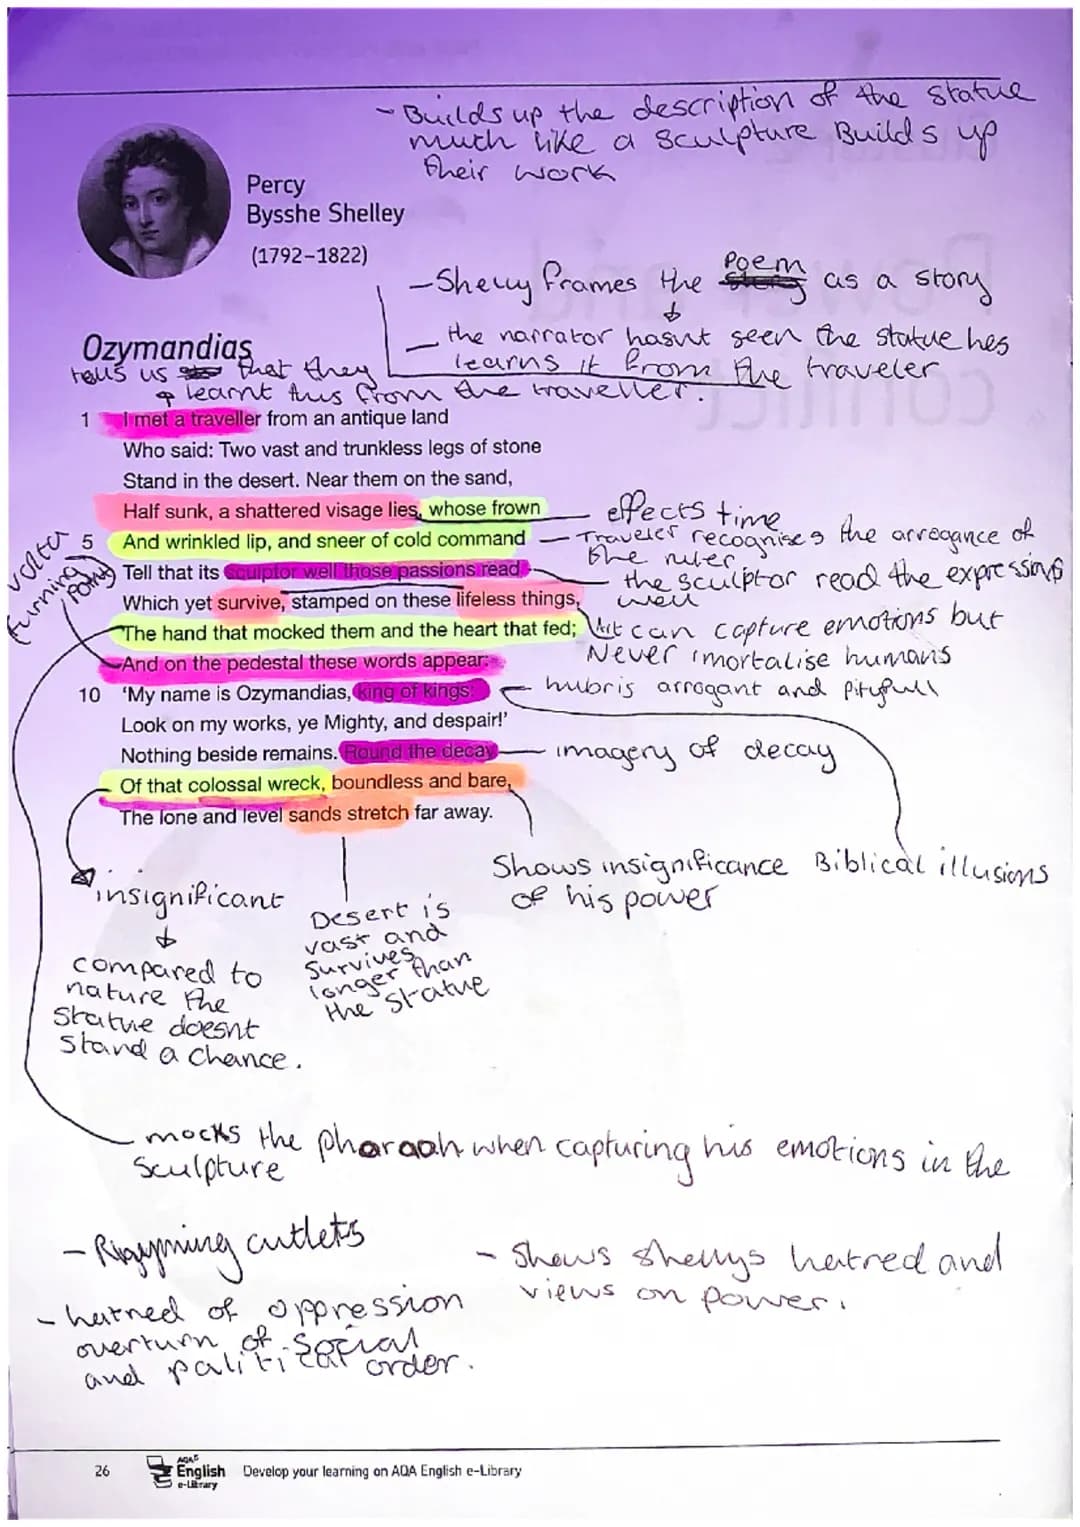 - Builds up the description of the statue
much like a sculpture Builds up
their work
Percy
Bysshe Shelley
(1792–1822)
- Shelly frames the Poem as a story
the narrator hasnt seen the statue hes
learns it from the traveler
Ozymandias
tells us that they
learnt this from the traveller.
1 I met a traveller from an antique land
Who said: Two vast and trunkless legs of stone
Stand in the desert. Near them on the sand,
Half sunk, a shattered visage lies, whose frown
effects time
5 And wrinkled lip, and sneer of cold command
Traveler recognises the arrogance of
the ruler
Tell that its sculptor well those passions read
the sculptor read the expressions
well
volta
turning point
Which yet survive, stamped on these lifeless things,
The hand that mocked them and the heart that fed;
Art can capture emotions but
Never imortalise humans
And on the pedestal these words appear:
10 'My name is Ozymandias, king of kings:
hubris arrogant and pityfull
Look on my works, ye Mighty, and despair!'
Nothing beside remains. Round the decay
imagery of decay
Of that colossal wreck, boundless and bare,
The lone and level sands stretch far away.
Shows insignificance
of his power
Biblical illusions
insignificant
compared to
nature the
statue doesnt
stand a chance.
Desert is
vast and
survives
longer than
the statue
mocks the pharaoh when capturing his emotions in the
sculpture
- cutlets
- hatred of oppression
overturn of social
and political order.
- Shows shellys hatred and
views on power.
26
AQA
English
e-Library
Develop your learning on AQA English e-Library